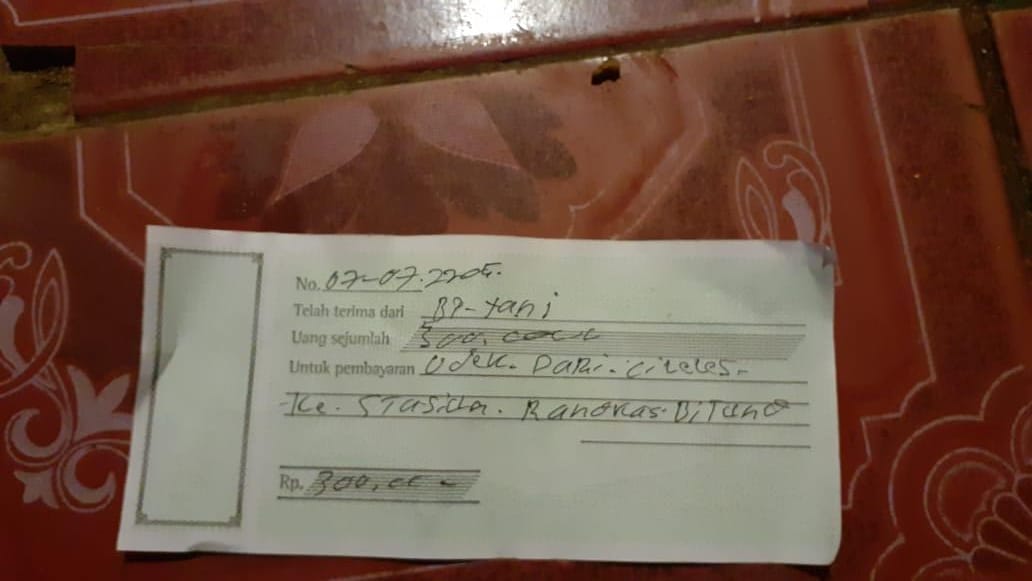 No. 07-07.2205.
Telah terima dari BP-Yani
Uang sejumlah 300.000
Untuk pembayaran OJek. DaRi. Citeles-
-Ke. STasiun. RangKas BiTung
Rp. 300,00 -